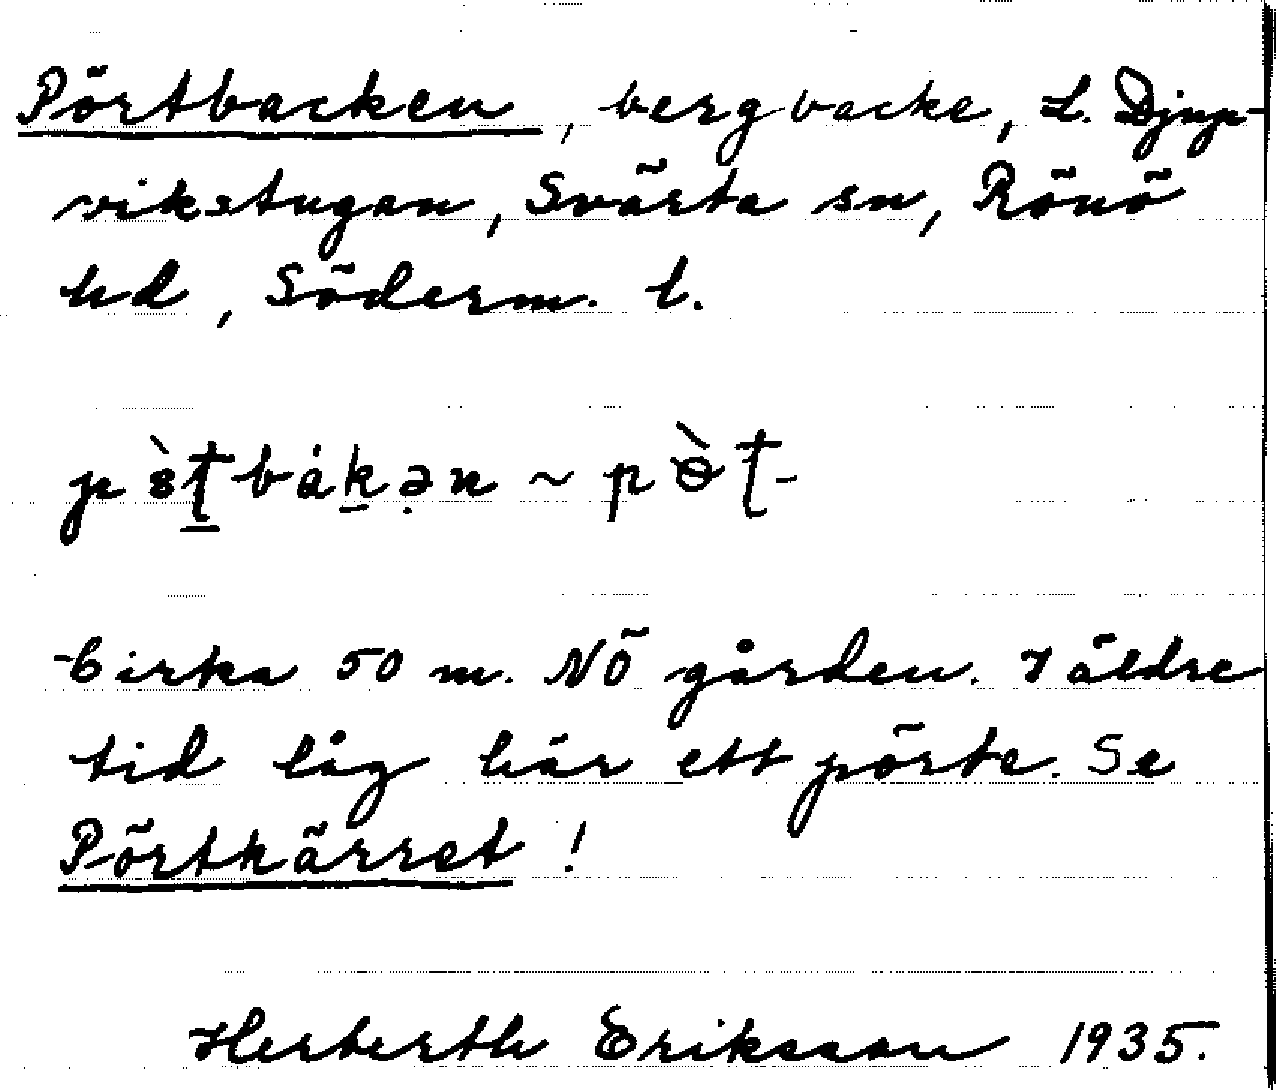 Pörtbacken, bergbacke, L. Djup-
vikstugan, Svärta sn, Rönö
hd, Söderm. l.
pɞ̀ṯbákə̣n ~ pɵ̀ţ-
Cirka 50 m. NÖ gården. I äldre
tid låg här ett pörte. Se
Pörtkärret!
Herberth Eriksson 1935.